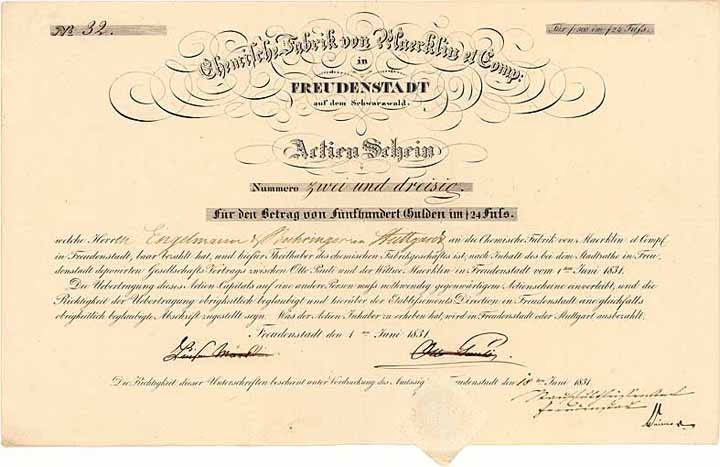 No 32.
Für f 500 im f 24 Fuſs.
Chemische Fabrik von Maerklin et Comp:
in
FREUDENSTADT
auf dem Schwarzwald.
Actien Schein
Nummero zwei und dreisig.
Für den Betrag von Fünfhundert Gulden im f 24 Fuſs.
welche Herren Engelmann & Boehringer in Stuttgardt an die Chemische Fabrik von Maerklin et Comp.
in Freudenstadt, baar bezahlt hat, und hiefür Theilhaber des chemischen Fabrikgeschäftes ist, nach Inhalt des bei dem Stadtrathe in Freu,
denstadt deponirten Gesellschafts Vertrags zwischen Otto Pauli und der Wittwe Maerklin in Freudenstadt vom 1ten Juni 1831.
Die Uebertragung dieses Actien Capitals auf eine andere Person muſs nothwendig gegenwärtigem Actienscheine einverleibt, und die
Richtigkeit der Uebertragung obrigkeitlich beglaubigt und hierüber der Etablissements Direction in Freudenstadt eine gleichfalls
obrigkeitlich beglaubigte Abschrift zugestellt seyn. Was der Actien Inhaber zu erheben hat, wird in Freudenstadt oder Stuttgart ausbezahlt.
Freudenstadt den 1ten Juni 1831.
Otto Pauli
Die Richtigkeit dieser Unterschriften bescheint unter Vordruckung des Amtssig Freudenstadt den 18ten Juni 1831
Freudenstadt